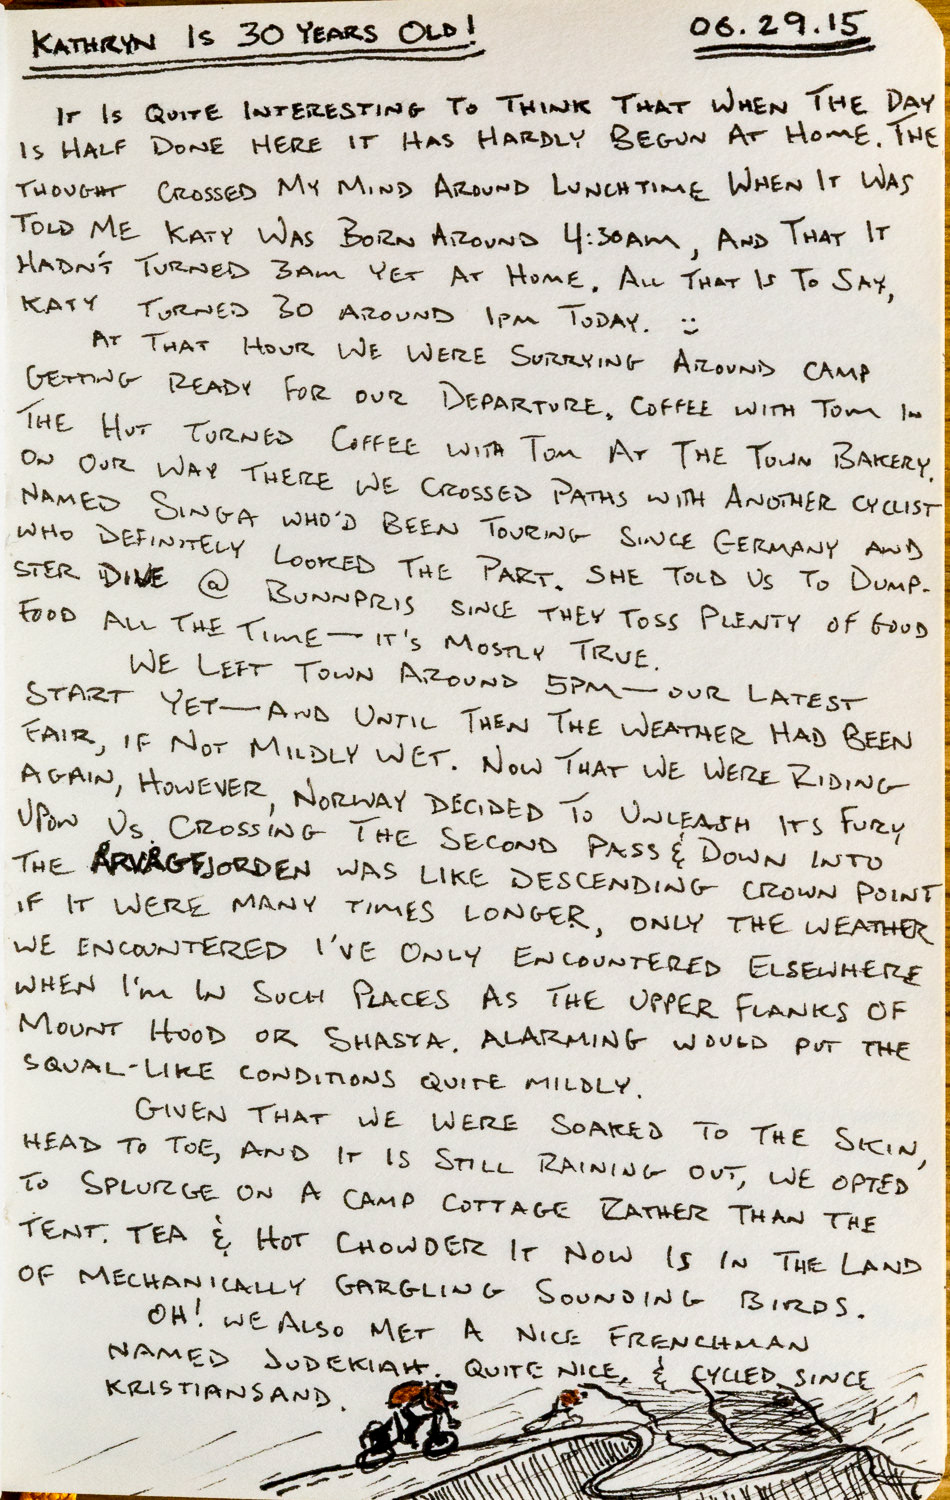 KATHRYN IS 30 YEARS OLD!
06.29.15
IT IS QUITE INTERESTING TO THINK THAT WHEN THE DAY
IS HALF DONE HERE IT HAS HARDLY BEGUN AT HOME. THE
THOUGHT CROSSED MY MIND AROUND LUNCHTIME WHEN IT WAS
TOLD ME KATY WAS BORN AROUND 4:30AM, AND THAT IT
HADN'T TURNED 3AM YET AT HOME. ALL THAT IS TO SAY,
KATY TURNED 30 AROUND 1PM TODAY. :)
AT THAT HOUR WE WERE SURRYING AROUND CAMP
GETTING READY FOR OUR DEPARTURE. COFFEE WITH TOM IN
THE HUT TURNED COFFEE WITH TOM AT THE TOWN BAKERY.
ON OUR WAY THERE WE CROSSED PATHS WITH ANOTHER CYCLIST
NAMED SINGA WHO'D BEEN TOURING SINCE GERMANY AND
WHO DEFINITELY LOOKED THE PART. SHE TOLD US TO DUMP-
STER DIVE @ BUNNPRIS SINCE THEY TOSS PLENTY OF GOOD
FOOD ALL THE TIME — IT'S MOSTLY TRUE.
WE LEFT TOWN AROUND 5PM — OUR LATEST
START YET — AND UNTIL THEN THE WEATHER HAD BEEN
FAIR, IF NOT MILDLY WET. NOW THAT WE WERE RIDING
AGAIN, HOWEVER, NORWAY DECIDED TO UNLEASH ITS FURY
UPON US. CROSSING THE SECOND PASS & DOWN INTO
THE ARVÅGFJORDEN WAS LIKE DESCENDING CROWN POINT
IF IT WERE MANY TIMES LONGER, ONLY THE WEATHER
WE ENCOUNTERED I'VE ONLY ENCOUNTERED ELSEWHERE
WHEN I'M IN SUCH PLACES AS THE UPPER FLANKS OF
MOUNT HOOD OR SHASTA. ALARMING WOULD PUT THE
SQUAL-LIKE CONDITIONS QUITE MILDLY.
GIVEN THAT WE WERE SOAKED TO THE SKIN,
HEAD TO TOE, AND IT IS STILL RAINING OUT, WE OPTED
TO SPLURGE ON A CAMP COTTAGE RATHER THAN THE
TENT. TEA & HOT CHOWDER IT NOW IS IN THE LAND
OF MECHANICALLY GARGLING SOUNDING BIRDS.
OH! WE ALSO MET A NICE FRENCHMAN
NAMED JUDEKIAH. QUITE NICE, & CYCLED SINCE
KRISTIANSAND.